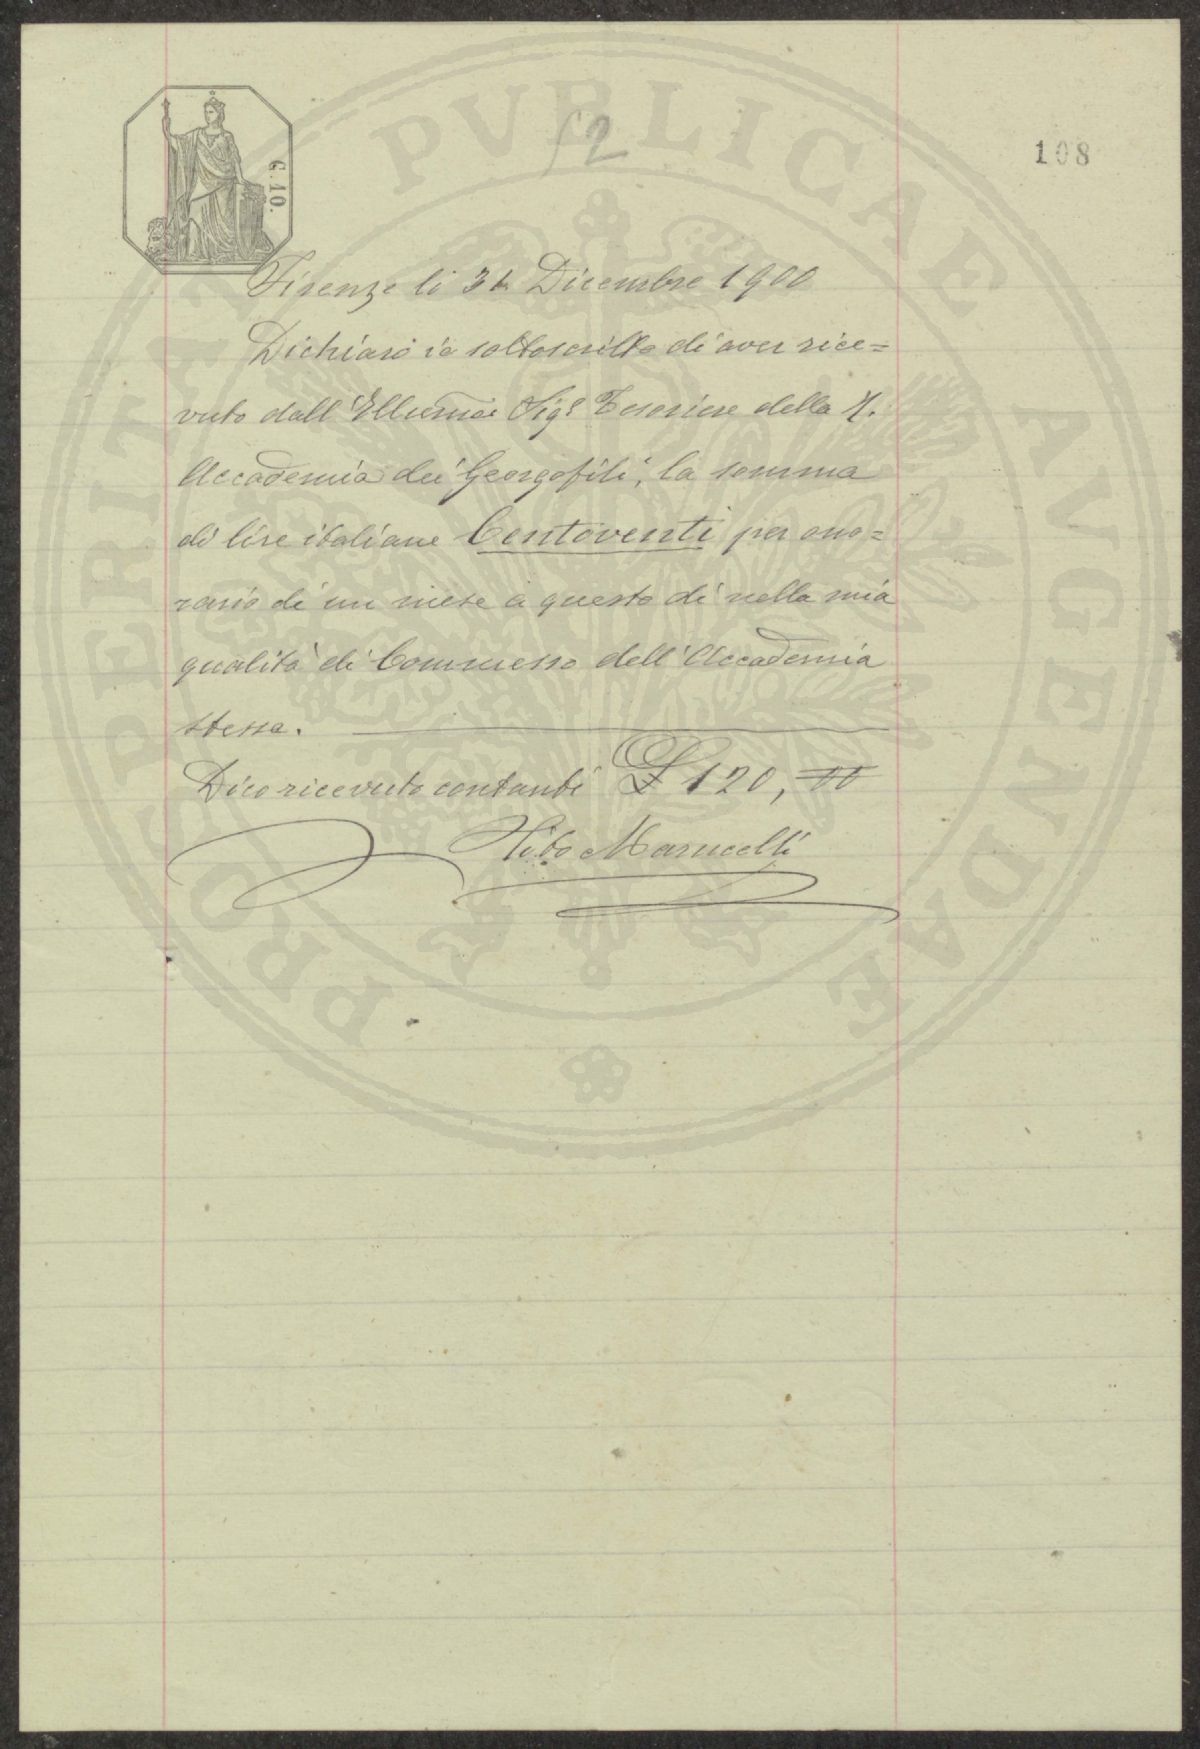 PROSPERITATI PVBLICAE AVGENDAE
12
108
C. 10.
Firenze li 31 Dicembre 1900
Dichiaro io sottoscritto di aver rice=
vuto dall'Illumo Sigr Tesoriere della R.
Accademia dei Georgofili, la somma
di lire italiane Centoventi per ono=
rario di un mese a questo dì nella mia
qualità di Commesso dell'Accademia
stessa.
Dico ricevuto contanti £ 120,00
Marucelli